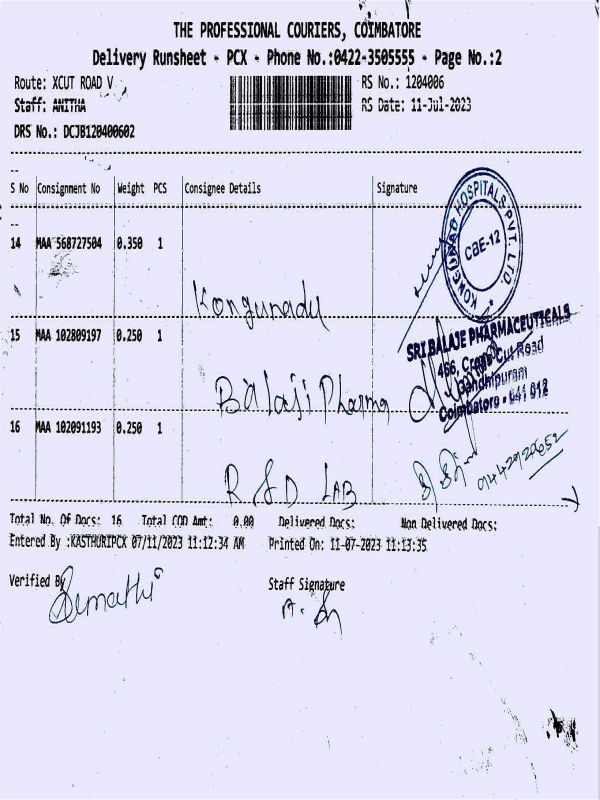 THE PROFESSIONAL COURIERS, COIMBATORE
Delivery Runsheet - PCX - Phone No.:0422-3505555 - Page No.:2
Route: XCUT ROAD V RS No.: 1204006
Staff: ANITHA RS Date: 11-Jul-2023
DRS No.: DCJB120400602
S No Consignment No Weight PCS Consignee Details Signature
KONGUNAD HOSPITALS PVT. LTD.
CBE-12
14 MAA 568727504 0.350 1
Kongunadu
15 MAA 102809197 0.250 1
SRI BALAJE PHARMACEUTICALS
466, Cross Cut Road
Gandhipuram
Coimbatore - 641 012
Balaji Pharma
16 MAA 102091193 0.250 1
R &D LAB
Total No. Of Docs: 16 Total COD Amt: 0.00 Delivered Docs: Non Delivered Docs:
Entered By :KASTHURIPCX 07/11/2023 11:12:34 AM Printed On: 11-07-2023 11:13:35
Verified By Staff Signature